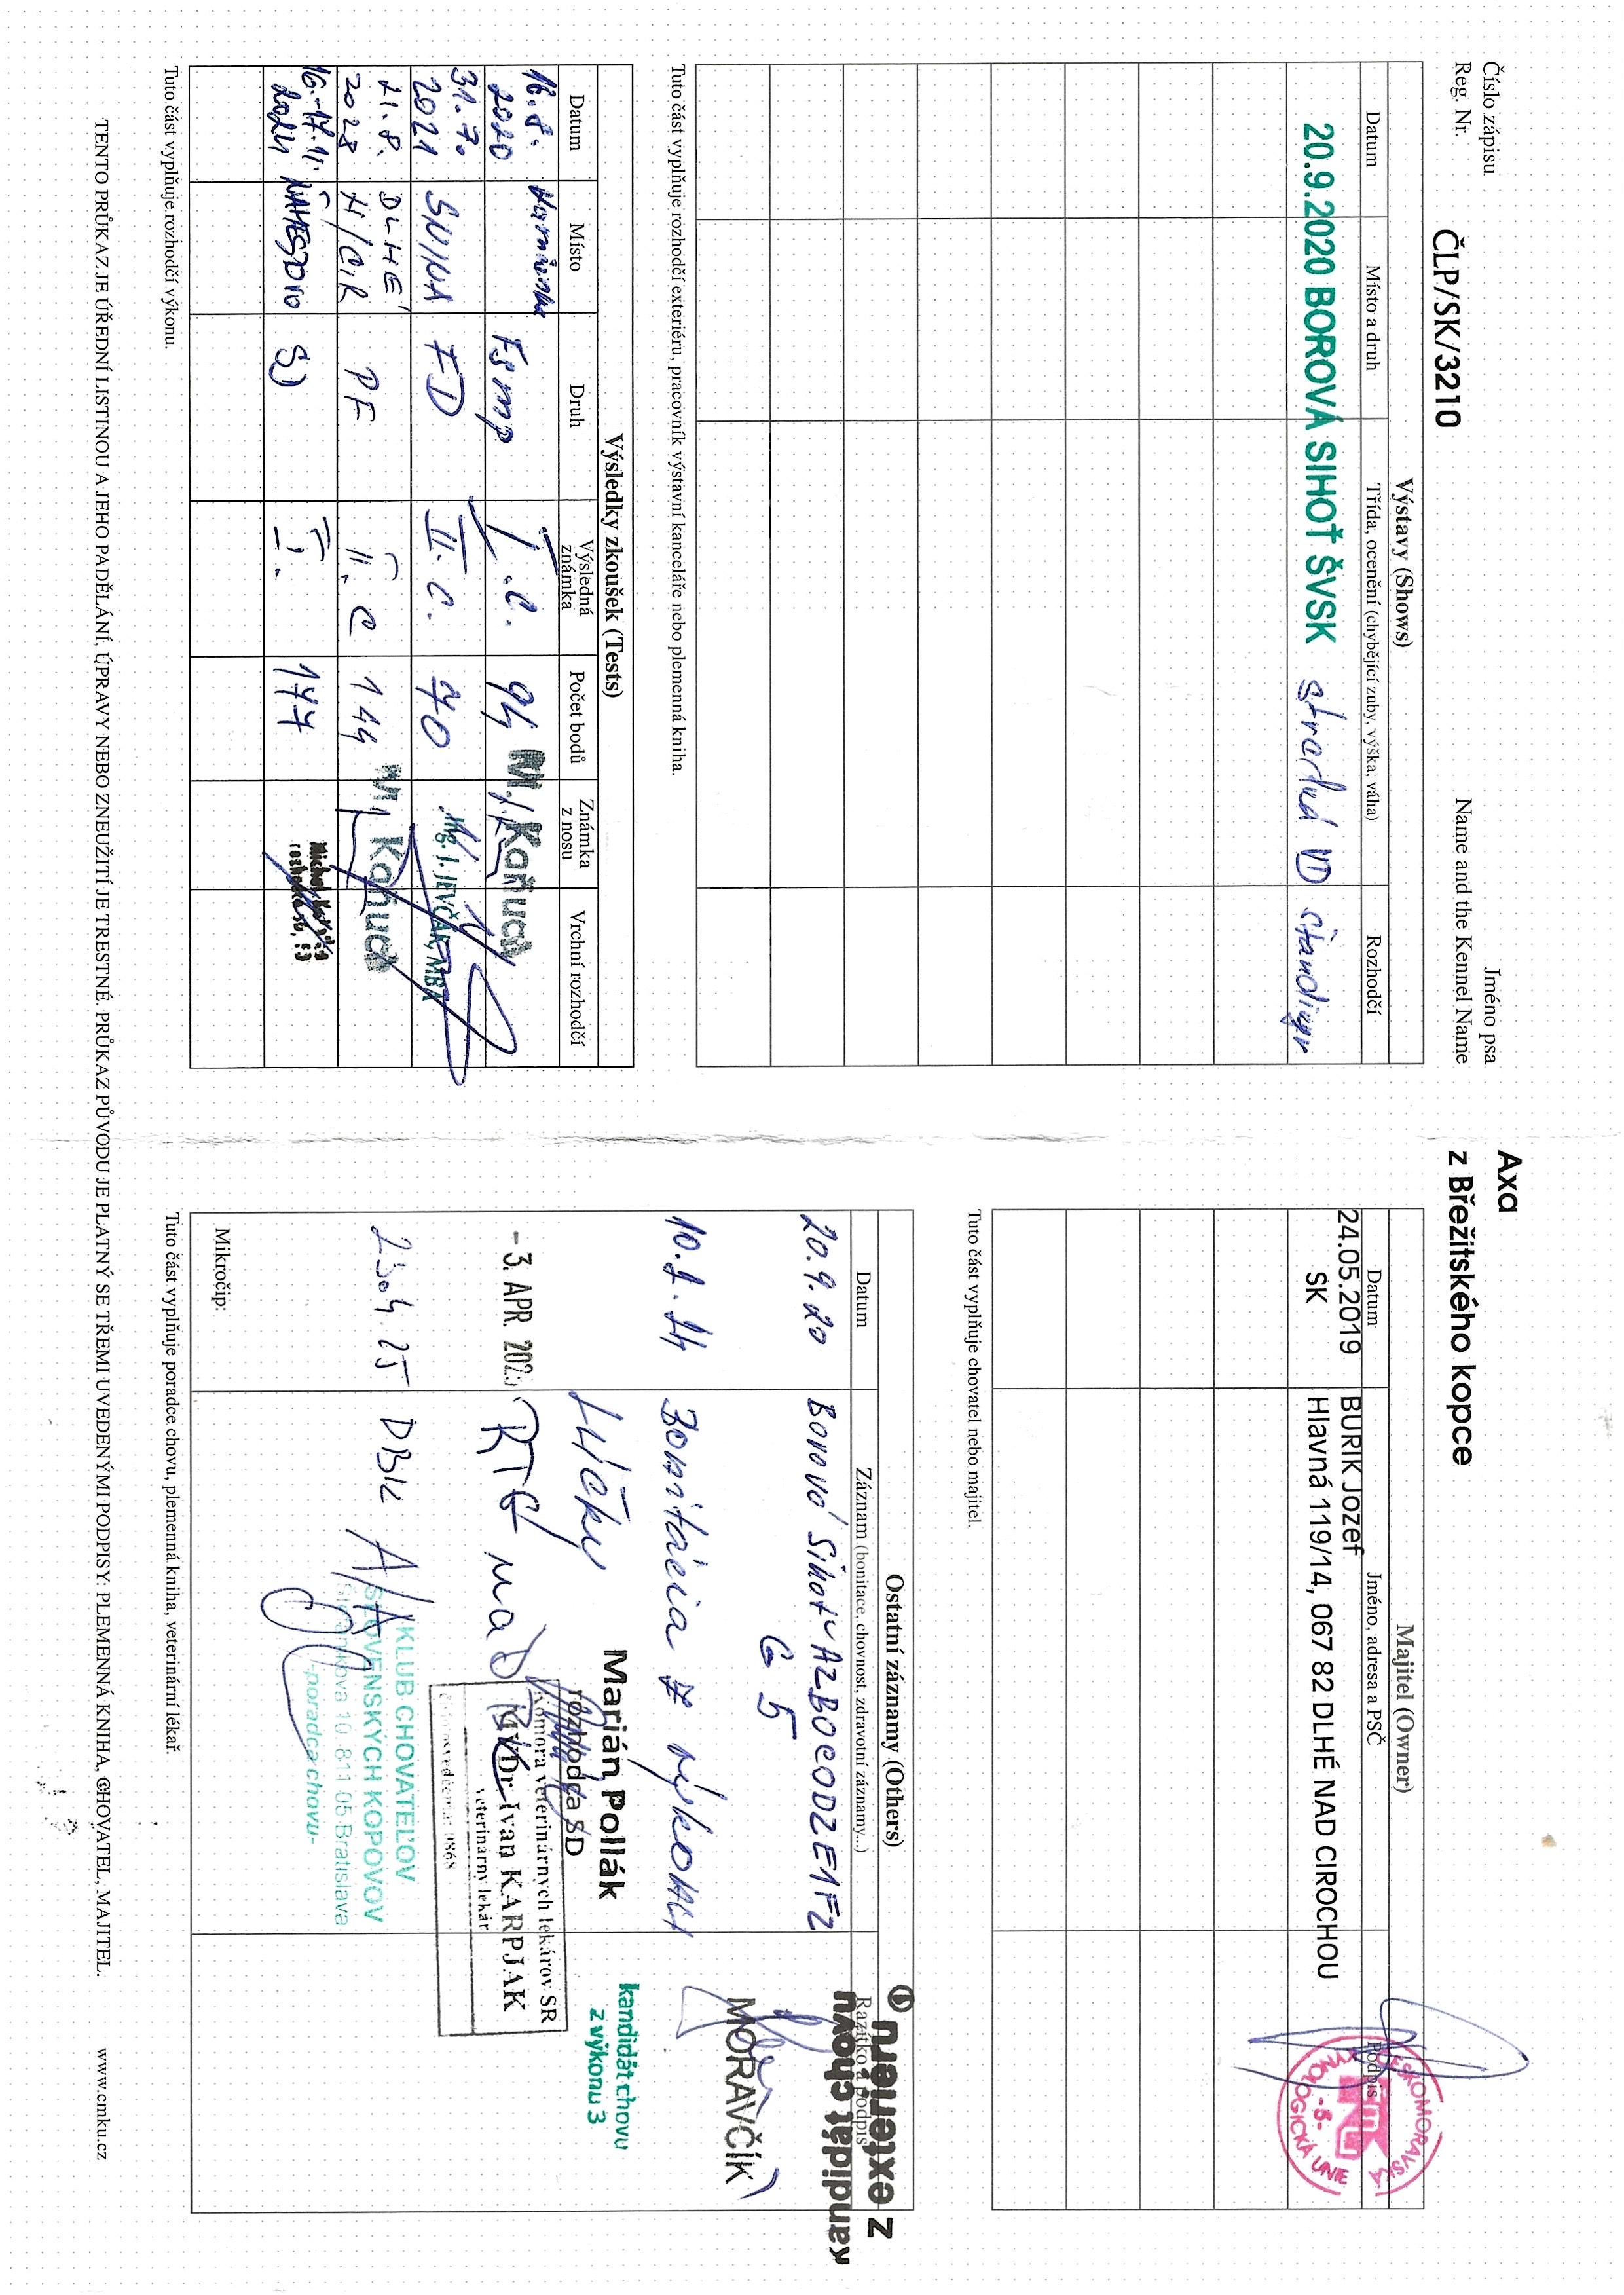 Číslo zápisu
Reg. Nr.
ČLP/SK/3210
Jméno psa
Name and the Kennel Name
Axa
z Břežitského kopce
Výstavy (Shows)
Datum Místo a druh Třída, ocenění (chybějící zuby, výška, váha) Rozhodčí
20.9.2020 BOROVÁ SIHOŤ ŠVSK stredná VD
Tuto část vyplňuje rozhodčí exteriéru, pracovník výstavní kanceláře nebo plemenná kniha.
Výsledky zkoušek (Tests)
Datum Místo Druh Výsledná známka Počet bodů Známka z nosu Vrchní rozhodčí
16.8. 2020 FSMP I.c. 94 M. Kaňuch
31.7. 2021 SNINA FD II.c. 70 Mg. I. JEVČÁK, MBA
21.8. 2023 DLHÉ N/CIR PF II.c 144 M. Kaňuch
16.-17.11. 2024 SD I. 177
rozhodca SD, FD
Tuto část vyplňuje rozhodčí výkonu.
Majitel (Owner)
Datum Jméno, adresa a PSČ Podpis
24.05.2019 BURIK Jozef
SK Hlavná 119/14, 067 82 DLHÉ NAD CIROCHOU
ČESKOMORAVSKÁ KYNOLOGICKÁ UNIE
-8-
Tuto část vyplňuje chovatel nebo majitel.
Ostatní záznamy (Others)
Datum Záznam (bonitace, chovnost, zdravotní záznamy...) Razítko a podpis
kandidát chovu
z exteriéru
20.9.20 Borová Sihoť A2B0C0D2E1F2
G5
MORAVČÍK
Bonitácia z výkonu
kandidát chovu
z výkonu 3
Marián Pollák
rozhodca SD
- 3. APR. RTG na DBK
Komora veterinárnych lekárov SR
MVDr. Ivan KARPJAK
veterinárny lekár
DBK A/A
KLUB CHOVATEĽOV
SLOVENSKÝCH KOPOVOV
Štefánikova 10, 811 05 Bratislava
-poradca chovu-
Mikročip:
Tuto část vyplňuje poradce chovu, plemenná kniha, veterinární lékař.
TENTO PRŮKAZ JE ÚŘEDNÍ LISTINOU A JEHO PADĚLÁNÍ, ÚPRAVY NEBO ZNEUŽITÍ JE TRESTNÉ. PRŮKAZ PŮVODU JE PLATNÝ SE TŘEMI UVEDENÝMI PODPISY: PLEMENNÁ KNIHA, CHOVATEL, MAJITEL. www.cmku.cz